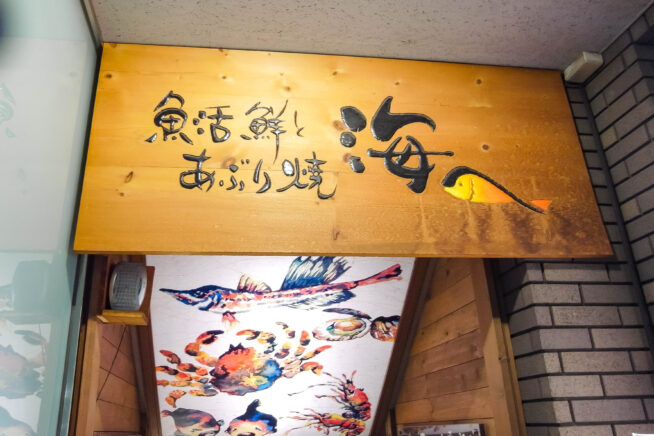 魚活鮮と
あぶり焼
海